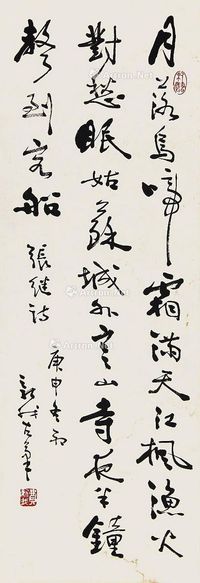 月落烏啼霜滿天江楓漁火
對愁眠姑蘇城外寒山寺夜半鐘
聲到客船
張繼詩
庚申冬初